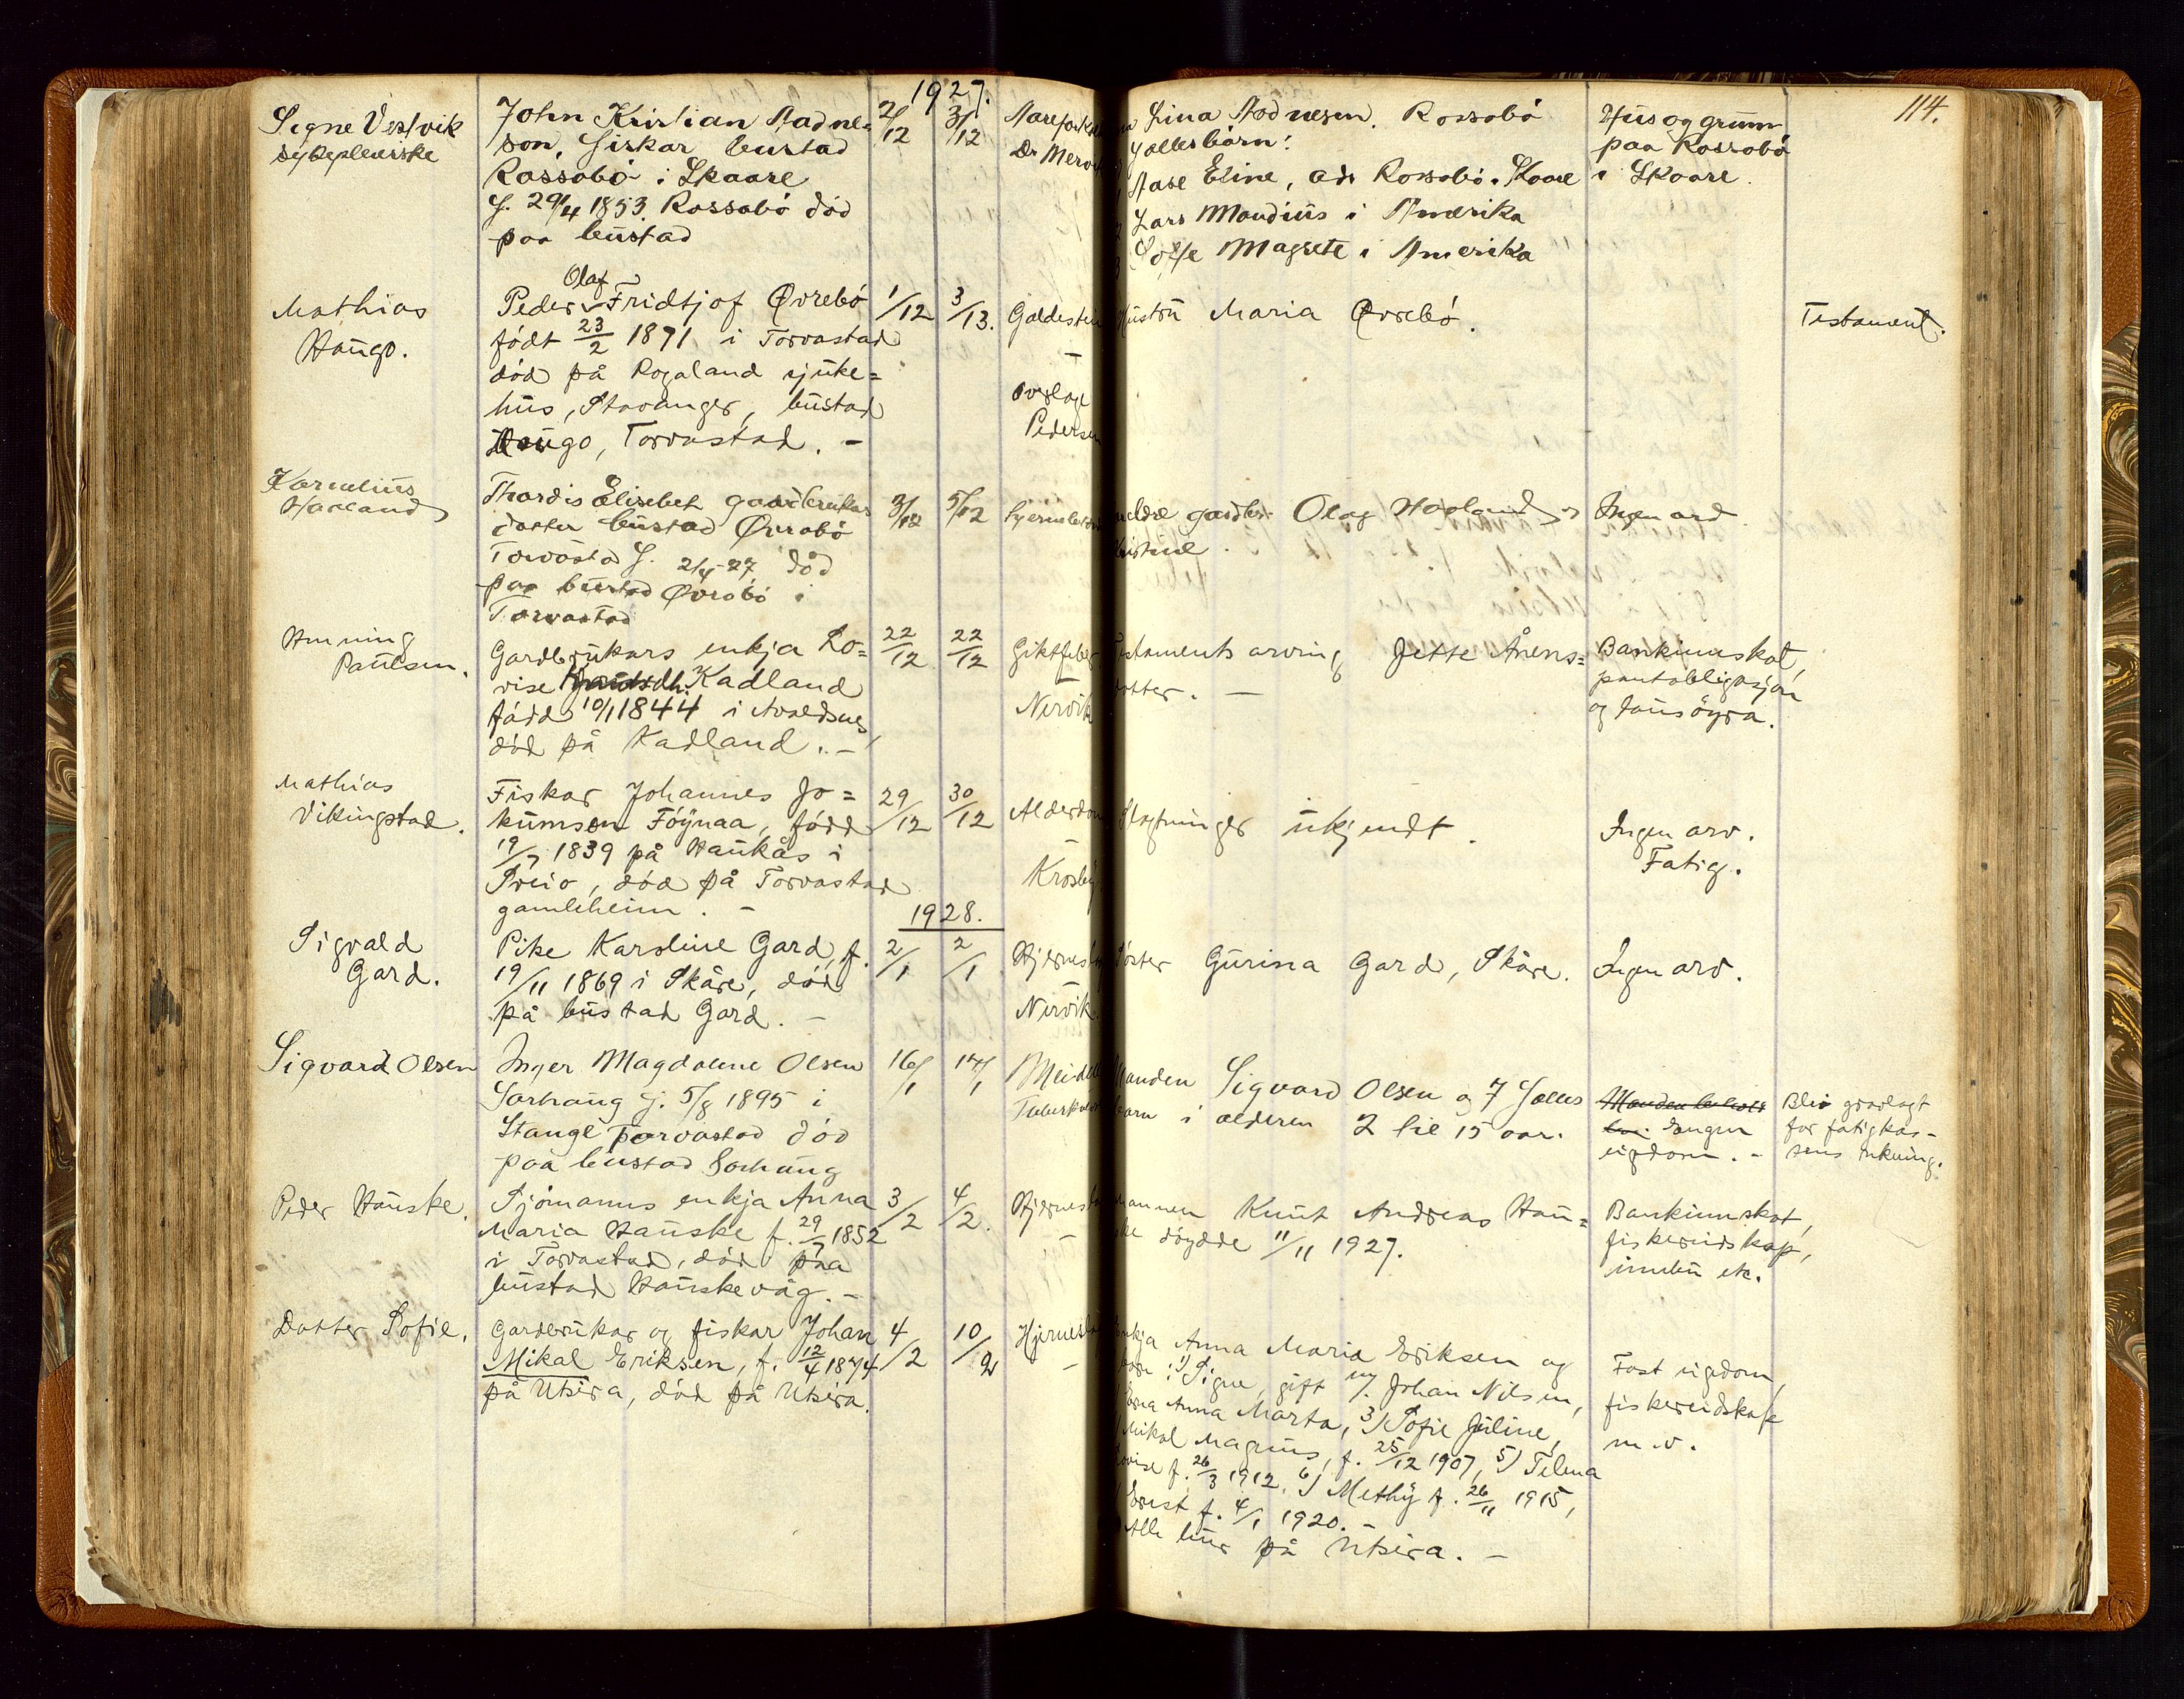 1927.
114.
Signe Vestvik
sykepleierske
John Kristian Aadne-
son, fiskar bustad
Rossabö i Skaare
f. 29/4 1853. Rossabö död
paa bustad
2/12
3/12
Lina Aadnesen. Rossabö
Fællesbarn:
Aase Eline, adr Rossabö. Skaare
Lars Maudius i Amerika
Magrete i Amerika
Hus og grunn
paa Rossabö
i Skaare.
Mathias
Haugo.
Olaf
Peder Fridtjof Øvrebö
födt 23/2 1871 i Torvastad
död på Rogaland sjuke=
hus, Stavanger, bustad
Haugo, Torvastad. -
1/12
3/13.
Galdestein
-
Overlæge
Pedersen
Hustru Maria Øvrebö.
Testament.
Kornelius
Haaland
Thordis Elisebet gaardbrukar
dotter bustad Øvrabö
Torvastad f. 2/4-27 död
paa bustad Øvrabö i
Torvastad
3/12
5/12
gardbr. Olaf Haaland og
Kristine.
Ingen arv
Henning
Paulsen.
Gardbrukars enkja Lo=
vise Kadland
född 10/1 1844 i Avaldsnes,
död på Kadland. -
22/12
22/12
Giktfeber
-
Nirvik
Testaments arving Jette Årens=
dotter. -
Bankinnskot,
pantobligasjon
og lausöyra.
Mathias
Vikingstad.
Fiskar Johannes Jo=
kumsen Föynaa, född
19/7 1839 på Haukås i
Sveio, död på Torvastad
gamleheim. -
29/12
30/12
Alderdom
-
Krosby
Slegtninger ukjendt.
Ingen arv.
Fatig.
1928.
Sigvald
Gard.
Pike Karoline Gard, f.
19/11 1869 i Skåre, död
på bustad Gard. -
2/1
2/1
Hjerneslag
-
Nirvik.
Söster Gurina Gard, Skåre.
Ingen arv.
Sigvard Olsen
Inger Magdalene Olsen
Sorhaug f. 5/8 1895 i
Stange Torvastad död
paa bustad Sorhaug
16/1
17/1
Tuberkulose
Manden Sigvard Olsen og 7 fælles
barn i alderen 2 til 15 aar.
Manden
Ingen
eigdom. -
Bliv
for fatigkas-
sens
Peder Hauske.
Sjömanns enkja Anna
Maria Hauske f. 29/7 1852
i Torvastad, död paa
bustad Hauskevåg. -
3/2
4/2.
Hjerneslag
-
Mannen Knut Andreas Hau=
ske döydde 11/11 1927.
Bankinnskot,
fiskereidskap,
innbu etc.
Dotter Sofie.
Gardbrukar og fiskar Johan
Mikal Eriksen, f. 12/4 1874
på Utsira, död på Utsira.
4/2
10/2
Hjerneslag
-
Enkja Anna Maria Eriksen og
born: 1) Signe, gift m/ Johan Nilsen,
Anna Marta, 3) Sofie Juline,
Mikal Magnus, f. 25/12 1907, 5) Telma
Lovise f. 26/3 1912, 6) Methy f. 26/11 1915,
f. 4/1 1920. -
Alle bur på Utsira. -
Fast eigdom,
fiskereidskap
m.v.